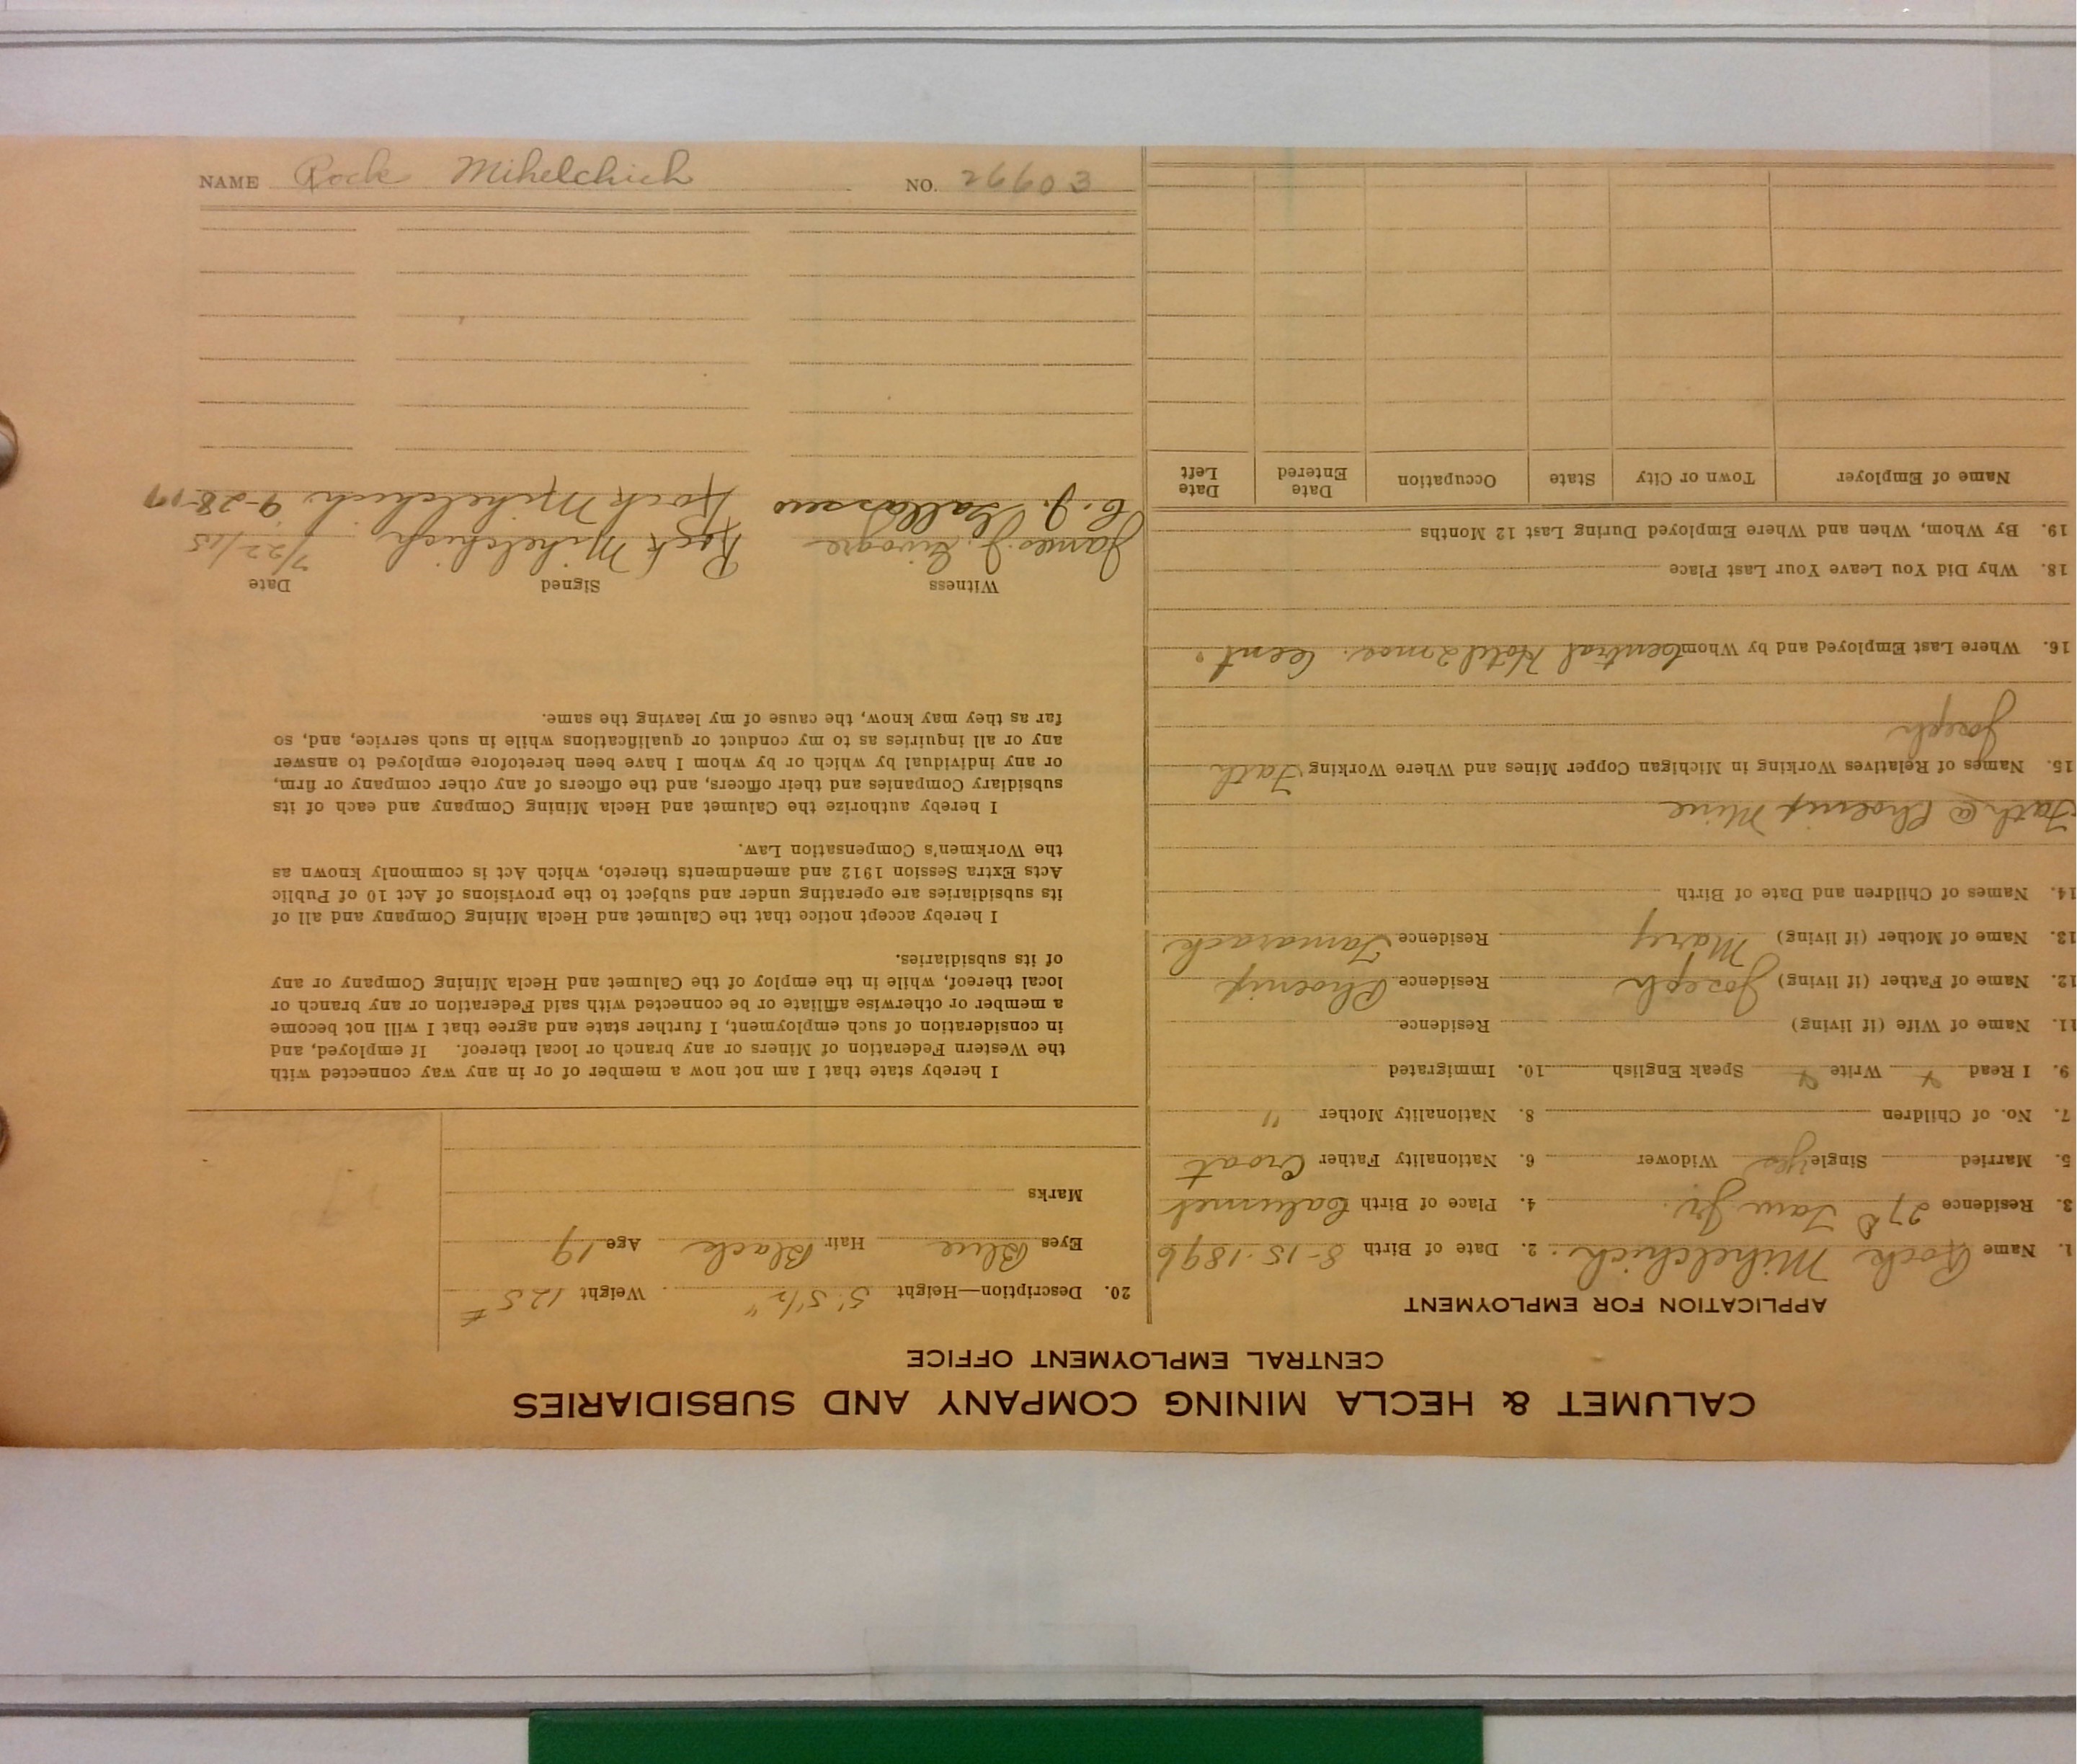 CALUMET & HECLA MINING COMPANY AND SUBSIDIARIES
CENTRAL EMPLOYMENT OFFICE
APPLICATION FOR EMPLOYMENT
1. Name Rock Mihelchich. 2. Date of Birth 8-15-1896
3. Residence 27 Tam Jr. 4. Place of Birth Calumet
5. Married Single yes Widower 6. Nationality Father Croat
7. No. of Children 8. Nationality Mother "
9. I Read Write Speak English 10. Immigrated
11. Name of Wife (if living) Residence
12. Name of Father (if living) Joseph Residence Phoenix
13. Name of Mother (if living) Mary Residence Tamarack
14. Names of Children and Date of Birth
Fath @ Phoenix Mine
15. Names of Relatives Working in Michigan Copper Mines and Where Working Fath
Joseph
16. Where Last Employed and by Whom Central Hotel 2 mos. Cent.
18. Why Did You Leave Your Last Place
19. By Whom, When and Where Employed During Last 12 Months
Name of Employer Town or City State Occupation Date Entered Date Left
20. Description—Height 5' 5½" Weight 125 #
Eyes Blue Hair Black Age 19
Marks
I hereby state that I am not now a member of or in any way connected with
the Western Federation of Miners or any branch or local thereof. If employed, and
in consideration of such employment, I further state and agree that I will not become
a member or otherwise affiliate or be connected with said Federation or any branch or
local thereof, while in the employ of the Calumet and Hecla Mining Company or any
of its subsidiaries.
I hereby accept notice that the Calumet and Hecla Mining Company and all of
its subsidiaries are operating under and subject to the provisions of Act 10 of Public
Acts Extra Session 1912 and amendments thereto, which Act is commonly known as
the Workmen's Compensation Law.
I hereby authorize the Calumet and Hecla Mining Company and each of its
subsidiary Companies and their officers, and the officers of any other company or firm,
or any individual by which or by whom I have been heretofore employed to answer
any or all inquiries as to my conduct or qualifications while in such service, and, so
far as they may know, the cause of my leaving the same.
Witness Signed Date
James J. Rock Mihelchich 7/22/15
C. J. Rock Mihelchich 9-28-17
NAME Rock Mihelchich NO. 26603